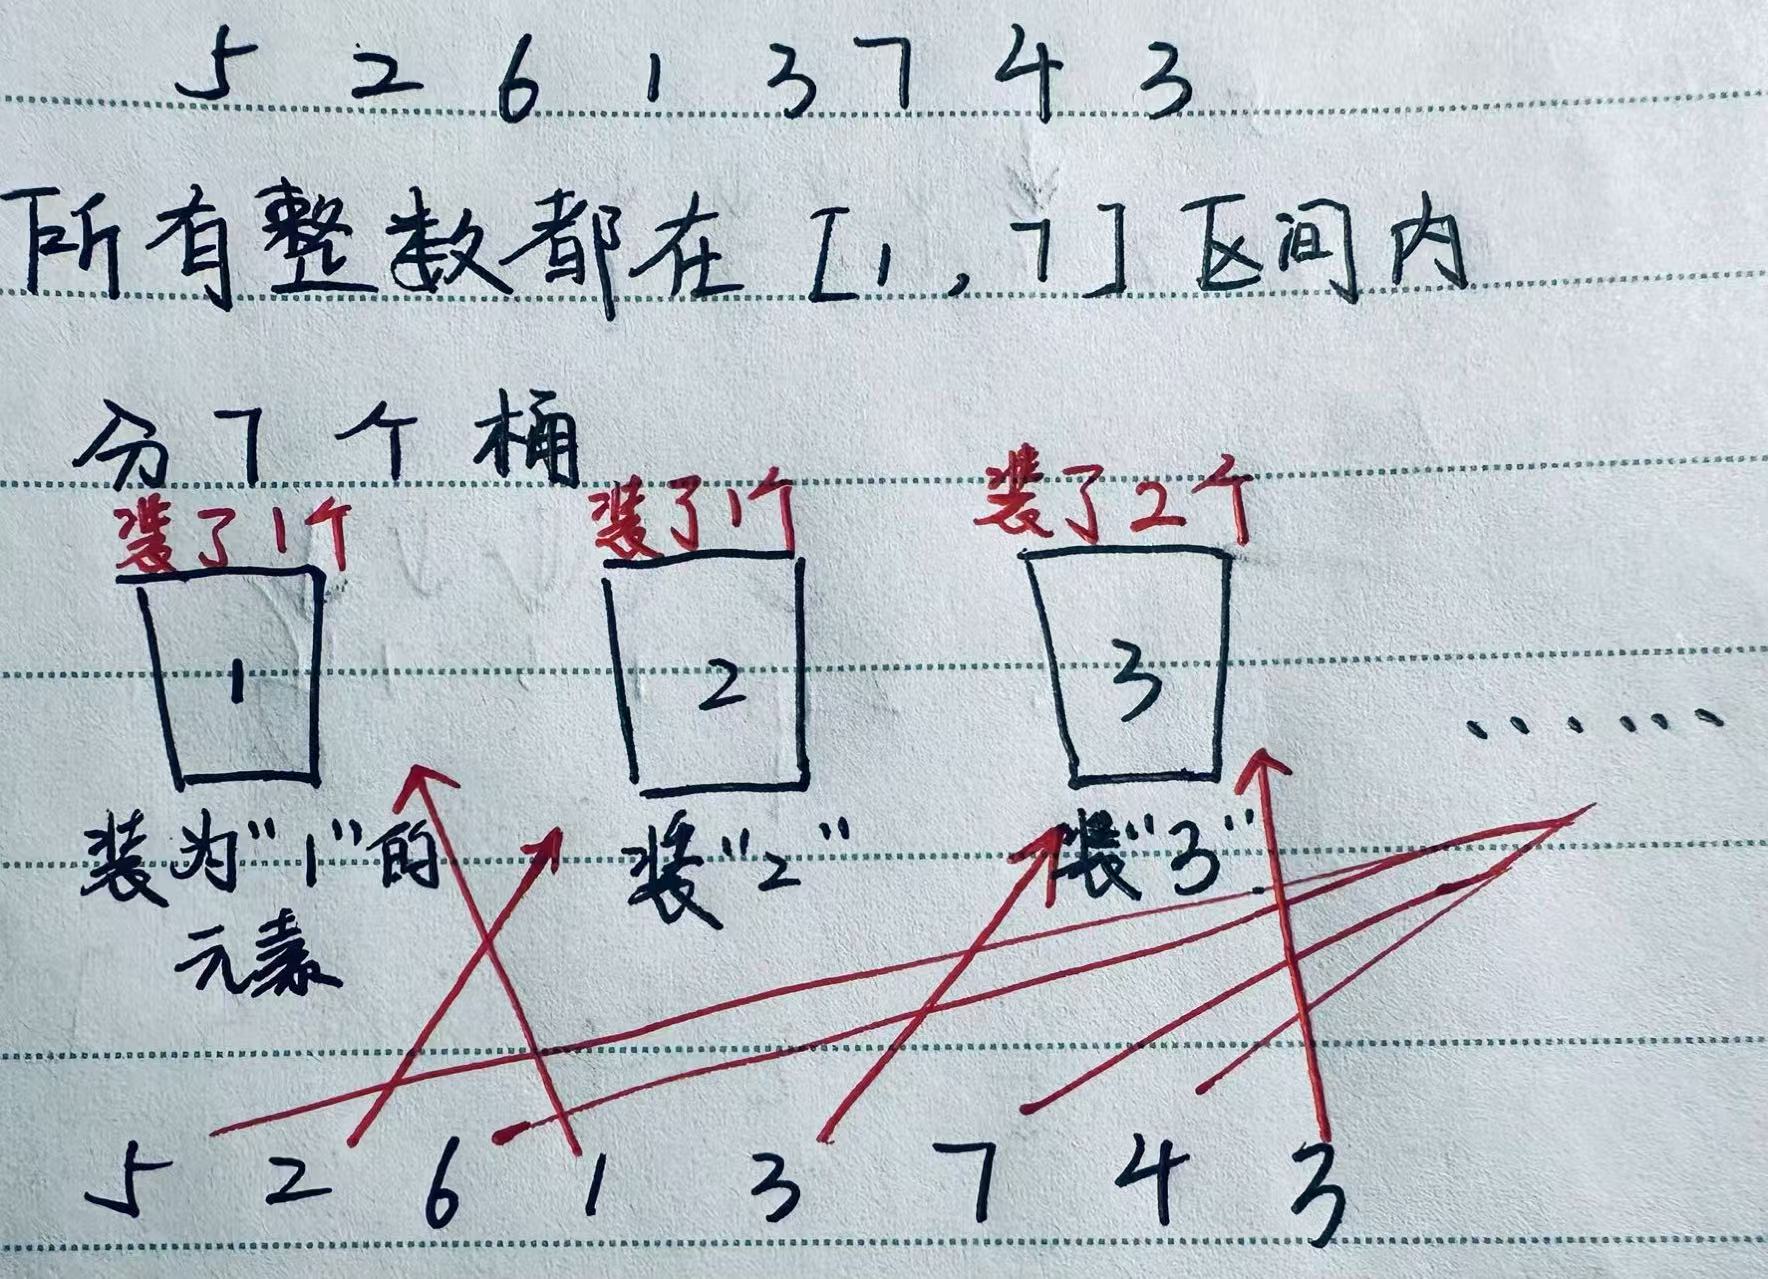 5 2 6 1 3 7 4 3
所有整数都在[1,7]区间内
分7个桶
装了1个 装了1个 装了2个
1 2 3 ......
装为“1”的元素 装“2” 装“3”
5 2 6 1 3 7 4 3